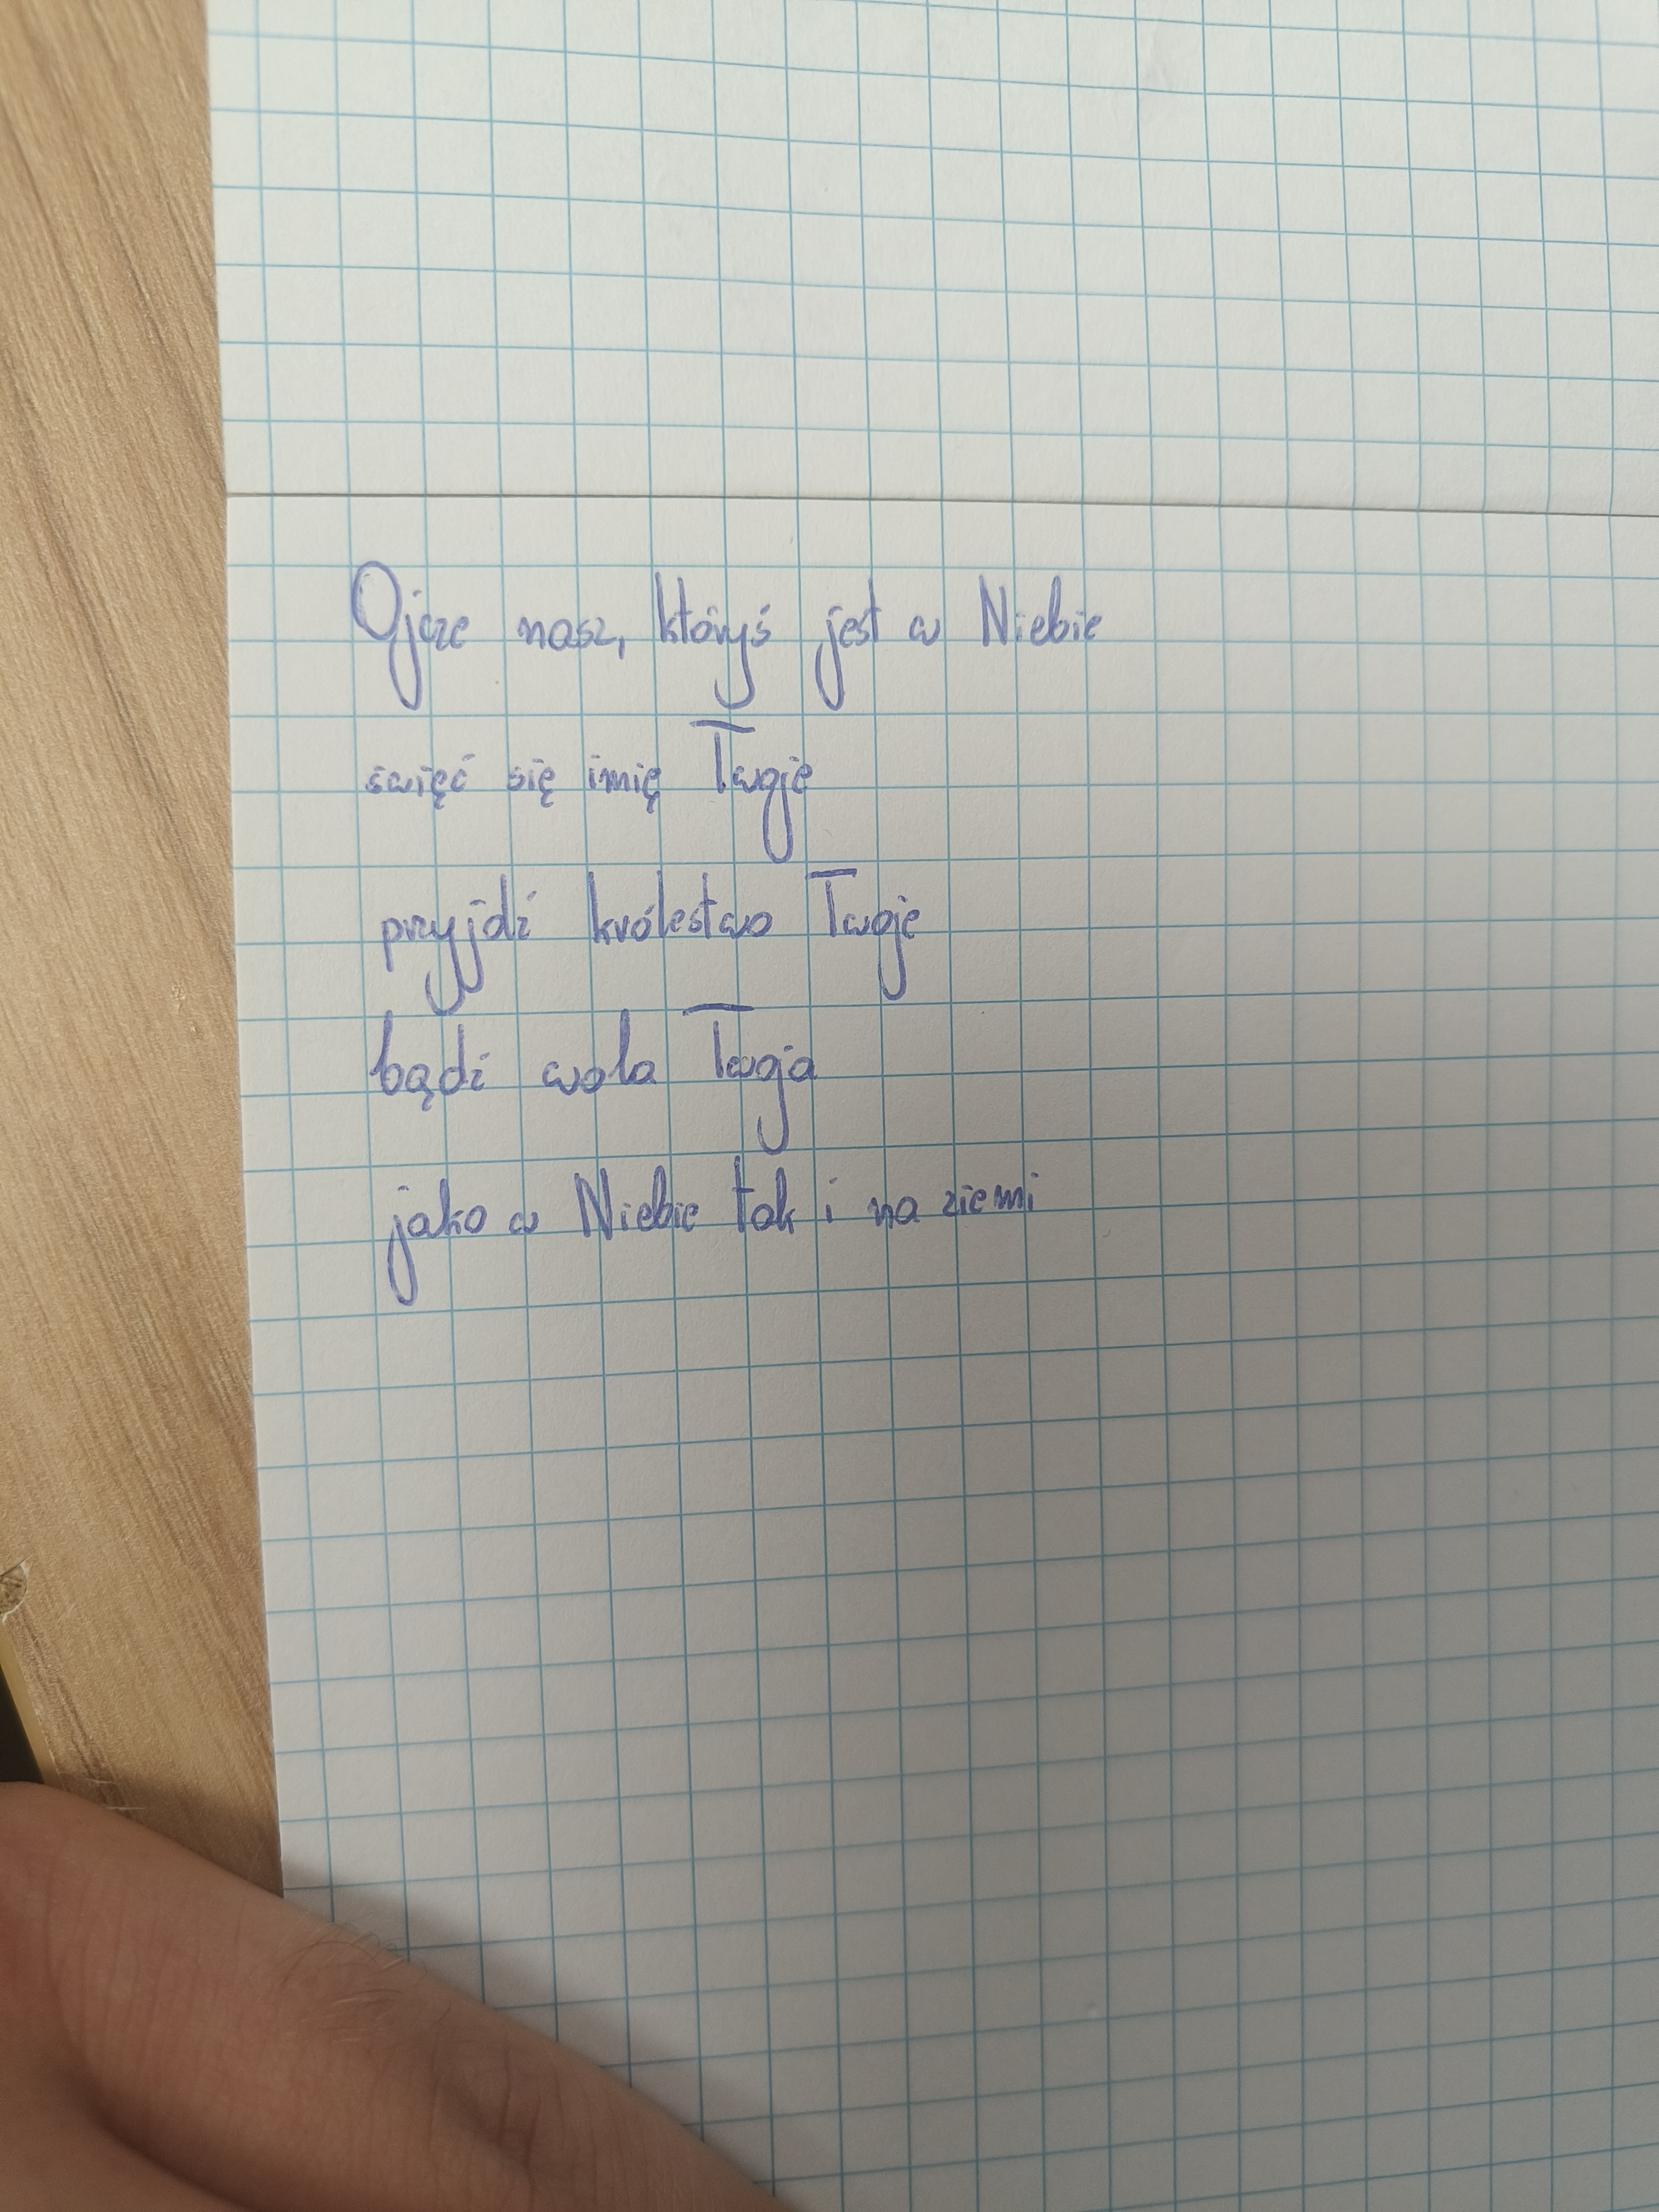 Ojcze nasz, któryś jest w Niebie
święć się imię Twoje
przyjdź królestwo Twoje
bądź wola Twoja
jako w Niebie tak i na ziemi